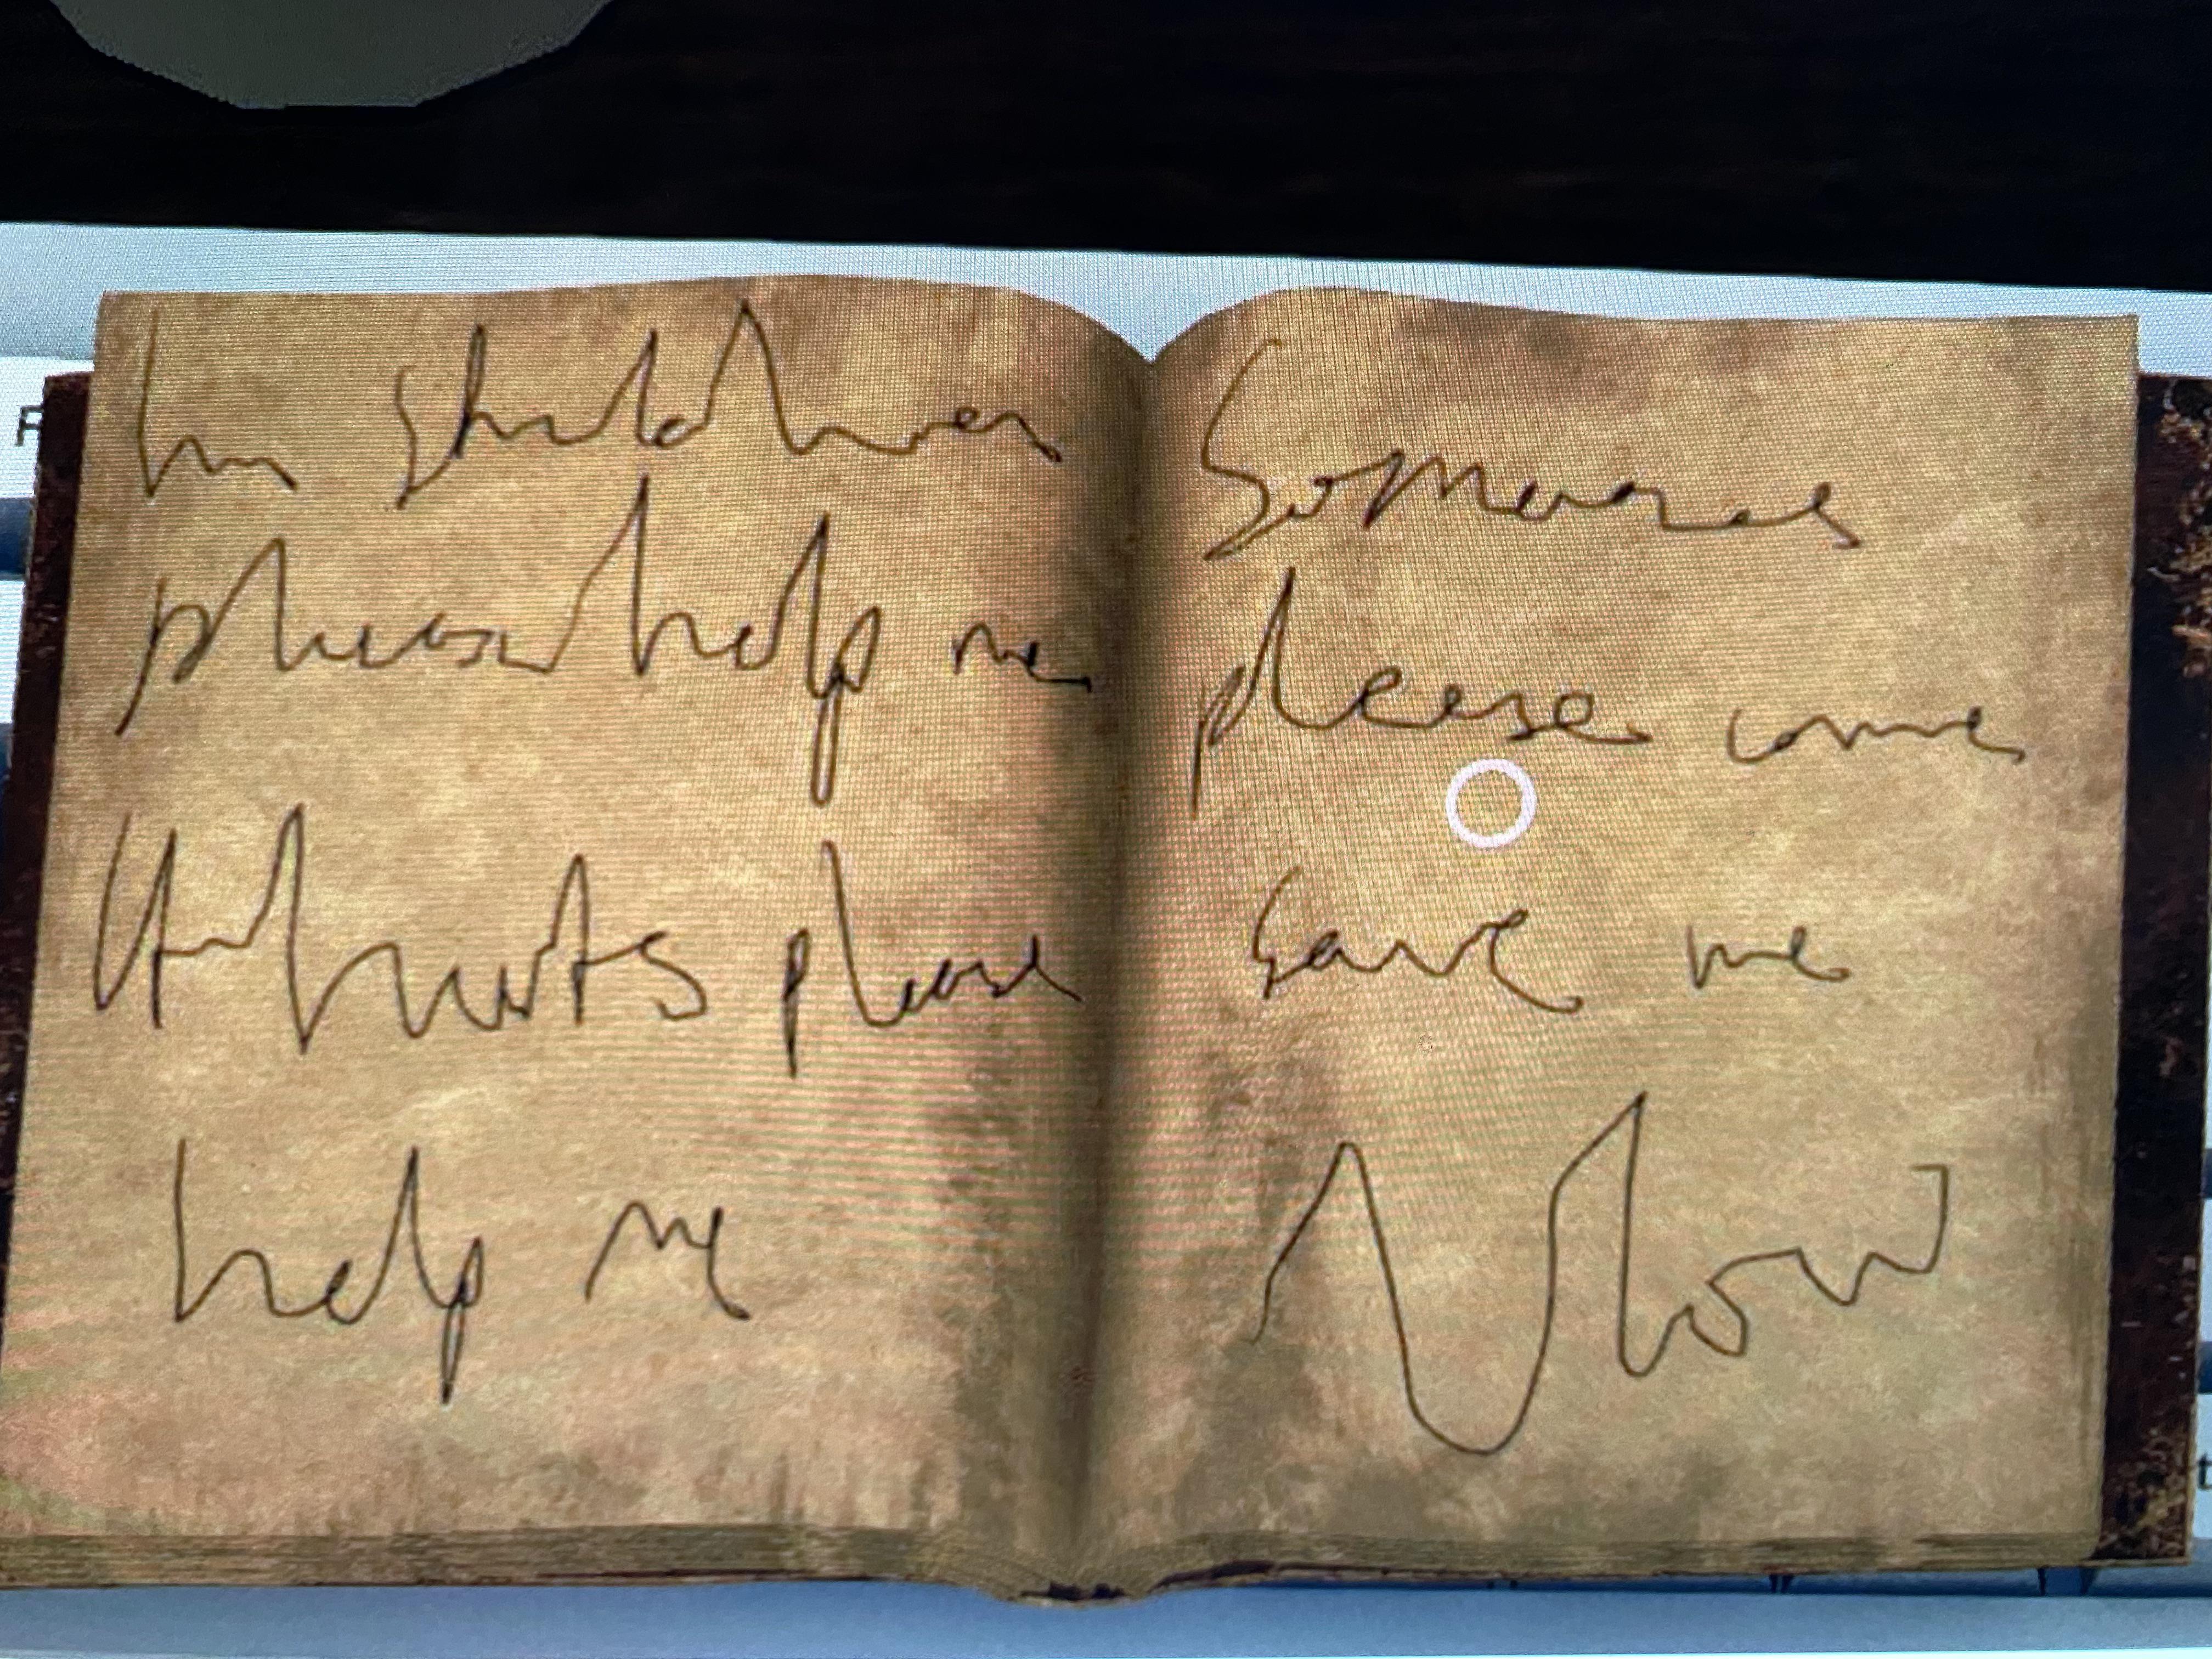 Im stuck here
please help me
It hurts please
help me
Someone
please come
save me
Now